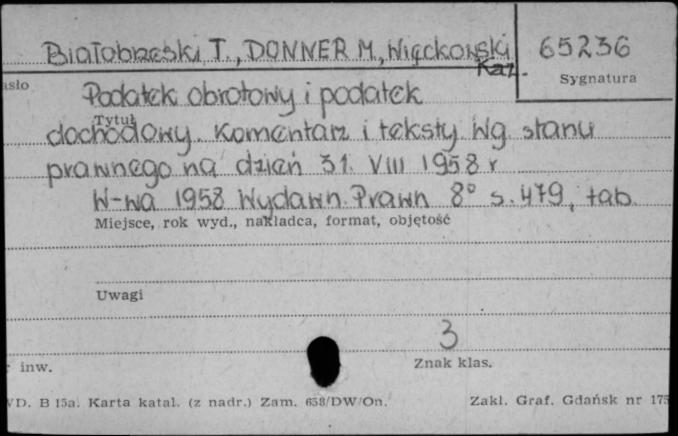 Białobrzeski T., DONNER M., Więckowski Kaz. 65236
Sygnatura
Podatek obrotowy i podatek
Tytuł
dochodowy. Komentarz i teksty wg. stanu
prawnego na dzień 31. VIII 1958 r
W-wa 1958 Wydawn. Prawn 8° s. 479, tab.
Miejsce, rok wyd., nakładca, format, objętość
Uwagi
3
inw. Znak klas.
D. B 15a. Karta katal. (z nadr.) Zam. 658/DW/On. Zakl. Graf. Gdańsk nr 175